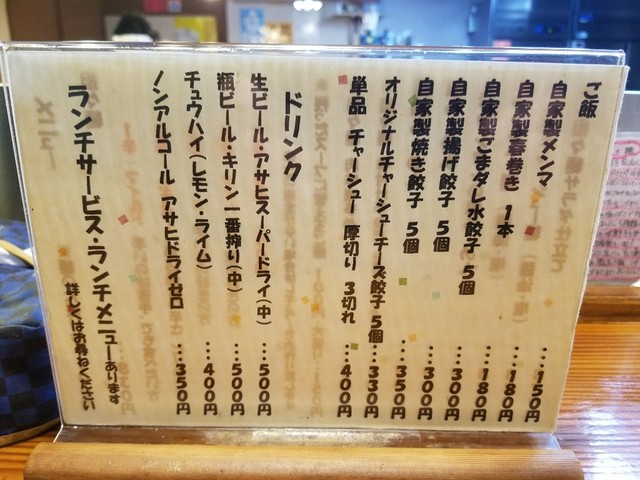 ご飯 …150円
自家製メンマ …180円
自家製春巻き 1本 …180円
自家製ごまダレ水餃子 5個 …300円
自家製揚げ餃子 5個 …300円
自家製焼き餃子 5個 …350円
オリジナルチャーシューチーズ餃子 5個 …330円
単品 チャーシュー 厚切り 3切れ …400円
ドリンク
生ビール・アサヒスーパードライ(中) …500円
瓶ビール・キリン一番搾り(中) …500円
チュウハイ(レモン・ライム) …400円
ノンアルコール アサヒドライゼロ …350円
ランチサービス・ランチメニューあります
(詳しくはお尋ねください